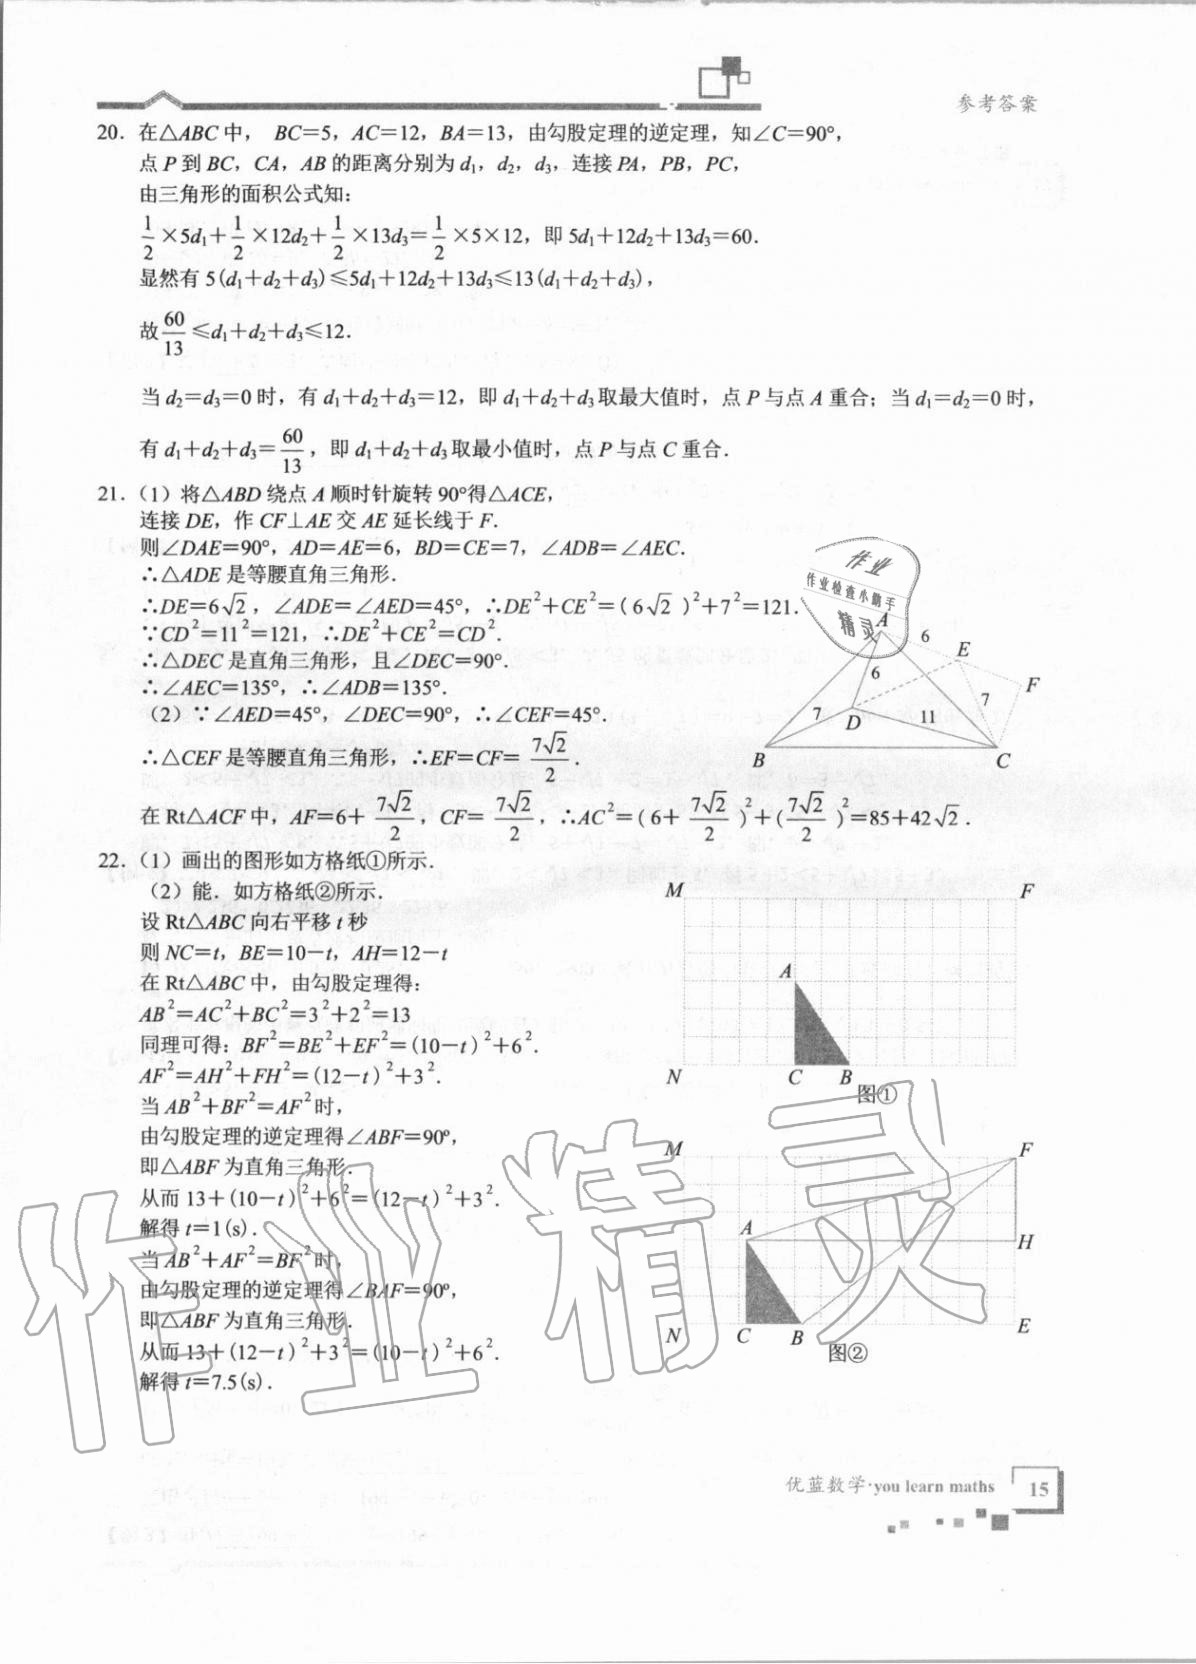 参考答案
20. 在△ABC中， BC=5，AC=12，BA=13，由勾股定理的逆定理，知∠C=90°，
点P到BC，CA，AB的距离分别为d₁，d₂，d₃，连接PA，PB，PC，
由三角形的面积公式知：
1/2×5d₁+1/2×12d₂+1/2×13d₃=1/2×5×12，即5d₁+12d₂+13d₃=60.
显然有5(d₁+d₂+d₃)≤5d₁+12d₂+13d₃≤13(d₁+d₂+d₃)，
故60/13≤d₁+d₂+d₃≤12.
当d₂=d₃=0时，有d₁+d₂+d₃=12，即d₁+d₂+d₃取最大值时，点P与点A重合；当d₁=d₂=0时，
有d₁+d₂+d₃=60/13，即d₁+d₂+d₃取最小值时，点P与点C重合.
21.（1）将△ABD绕点A顺时针旋转90°得△ACE，
连接DE，作CF⊥AE交AE延长线于F.
则∠DAE=90°，AD=AE=6，BD=CE=7，∠ADB=∠AEC.
∴△ADE是等腰直角三角形.
∴DE=6√2，∠ADE=∠AED=45°，∴DE²+CE²=(6√2)²+7²=121.
∵CD²=11²=121，∴DE²+CE²=CD².
∴△DEC是直角三角形，且∠DEC=90°.
∴∠AEC=135°，∴∠ADB=135°.
（2）∵∠AED=45°，∠DEC=90°，∴∠CEF=45°.
∴△CEF是等腰直角三角形，∴EF=CF=7√2/2.
在Rt△ACF中，AF=6+7√2/2，CF=7√2/2，∴AC²=(6+7√2/2)²+(7√2/2)²=85+42√2.
作业
作业检查小帮手
精灵
A
6
E
F
6
7
7
D
11
B
C
22.（1）画出的图形如方格纸①所示.
（2）能. 如方格纸②所示.
设Rt△ABC向右平移t秒
则NC=t，BE=10-t，AH=12-t
在Rt△ABC中，由勾股定理得：
AB²=AC²+BC²=3²+2²=13
同理可得：BF²=BE²+EF²=(10-t)²+6².
AF²=AH²+FH²=(12-t)²+3².
当AB²+BF²=AF²时，
由勾股定理的逆定理得∠ABF=90°，
即△ABF为直角三角形.
从而13+(10-t)²+6²=(12-t)²+3².
解得t=1(s).
当AB²+AF²=BF²时，
由勾股定理的逆定理得∠BAF=90°，
即△ABF为直角三角形.
从而13+(12-t)²+3²=(10-t)²+6².
解得t=7.5(s).
M
F
A
N
C
B
图①
M
F
A
H
N
C
B
E
图②
作业精灵
优蓝数学·you learn maths
15